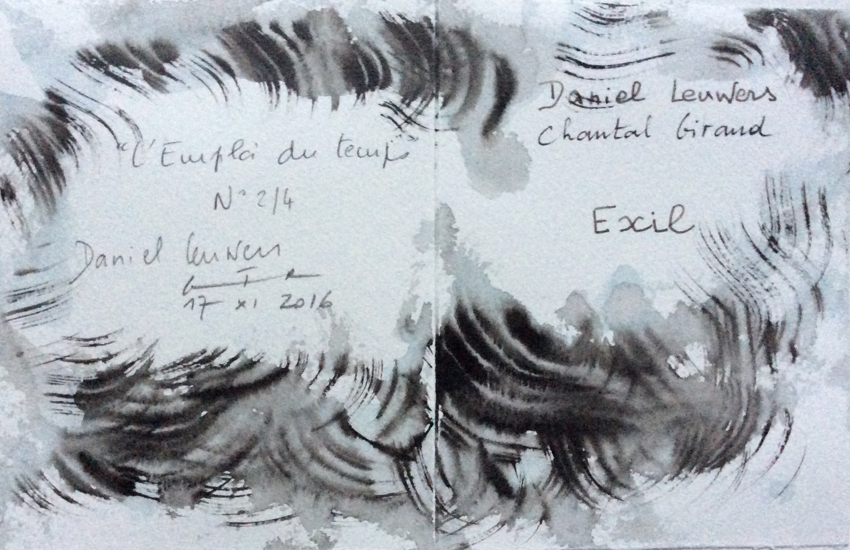 "L'Emploi du temps"
N° 2/4
Daniel Leuwers
17 XI 2016
Daniel Leuwers
Chantal Giraud
Exil